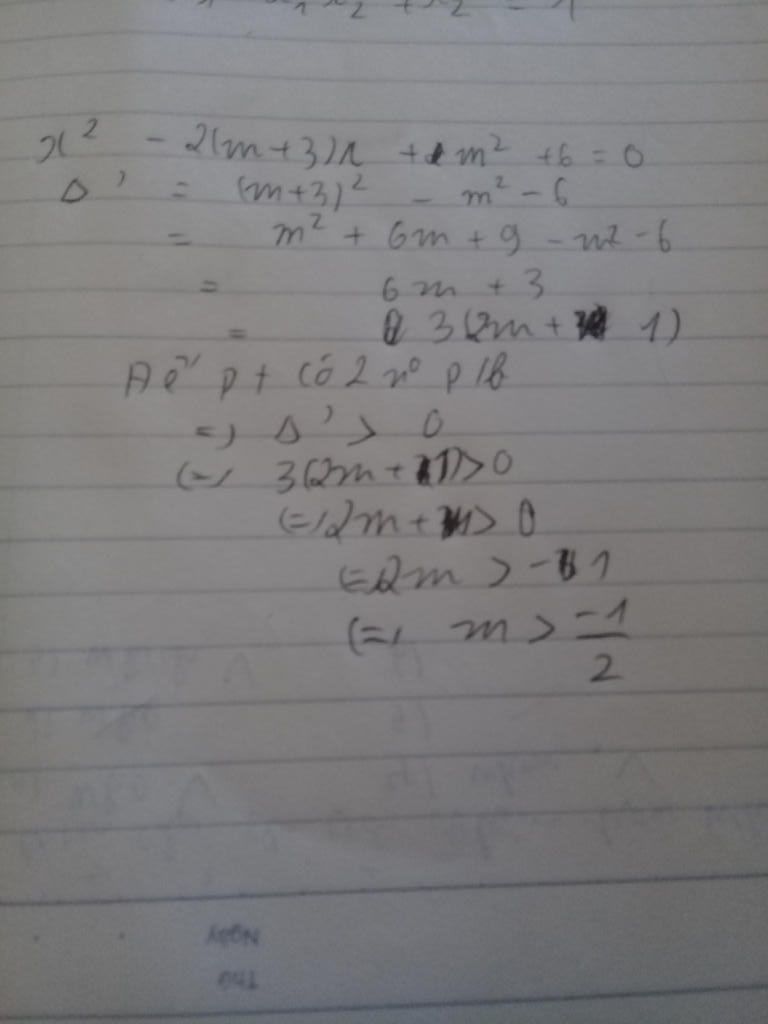 x² - 2(m+3)x + m² + 6 = 0
Δ' = (m+3)² - m² - 6
= m² + 6m + 9 - m² - 6
= 6m + 3
= 3(2m + 1)
Để pt có 2 n⁰ p/b
=> Δ' > 0
(=) 3(2m + 1) > 0
(=) 2m + 1 > 0
(=) 2m > -1
(=) m > -1/2
Ngày
Thứ